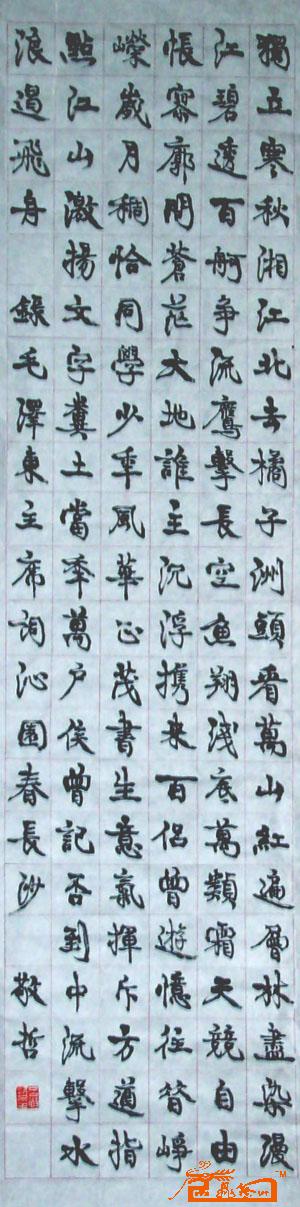 獨立寒秋湘江北去橘子洲頭看萬山紅遍層林盡染漫
江碧透百舸争流鷹擊長空魚翔淺底萬類霜天競自由
悵寥廓問蒼茫大地誰主沉浮携來百侶曾遊憶往昔崢
嶸歲月稠恰同學少年風華正茂書生意氣揮斥方遒指
點江山激揚文字糞土當年萬户侯曾記否到中流擊水
浪遏飛舟 錄毛澤東主席詞沁園春長沙 敬哲
TM